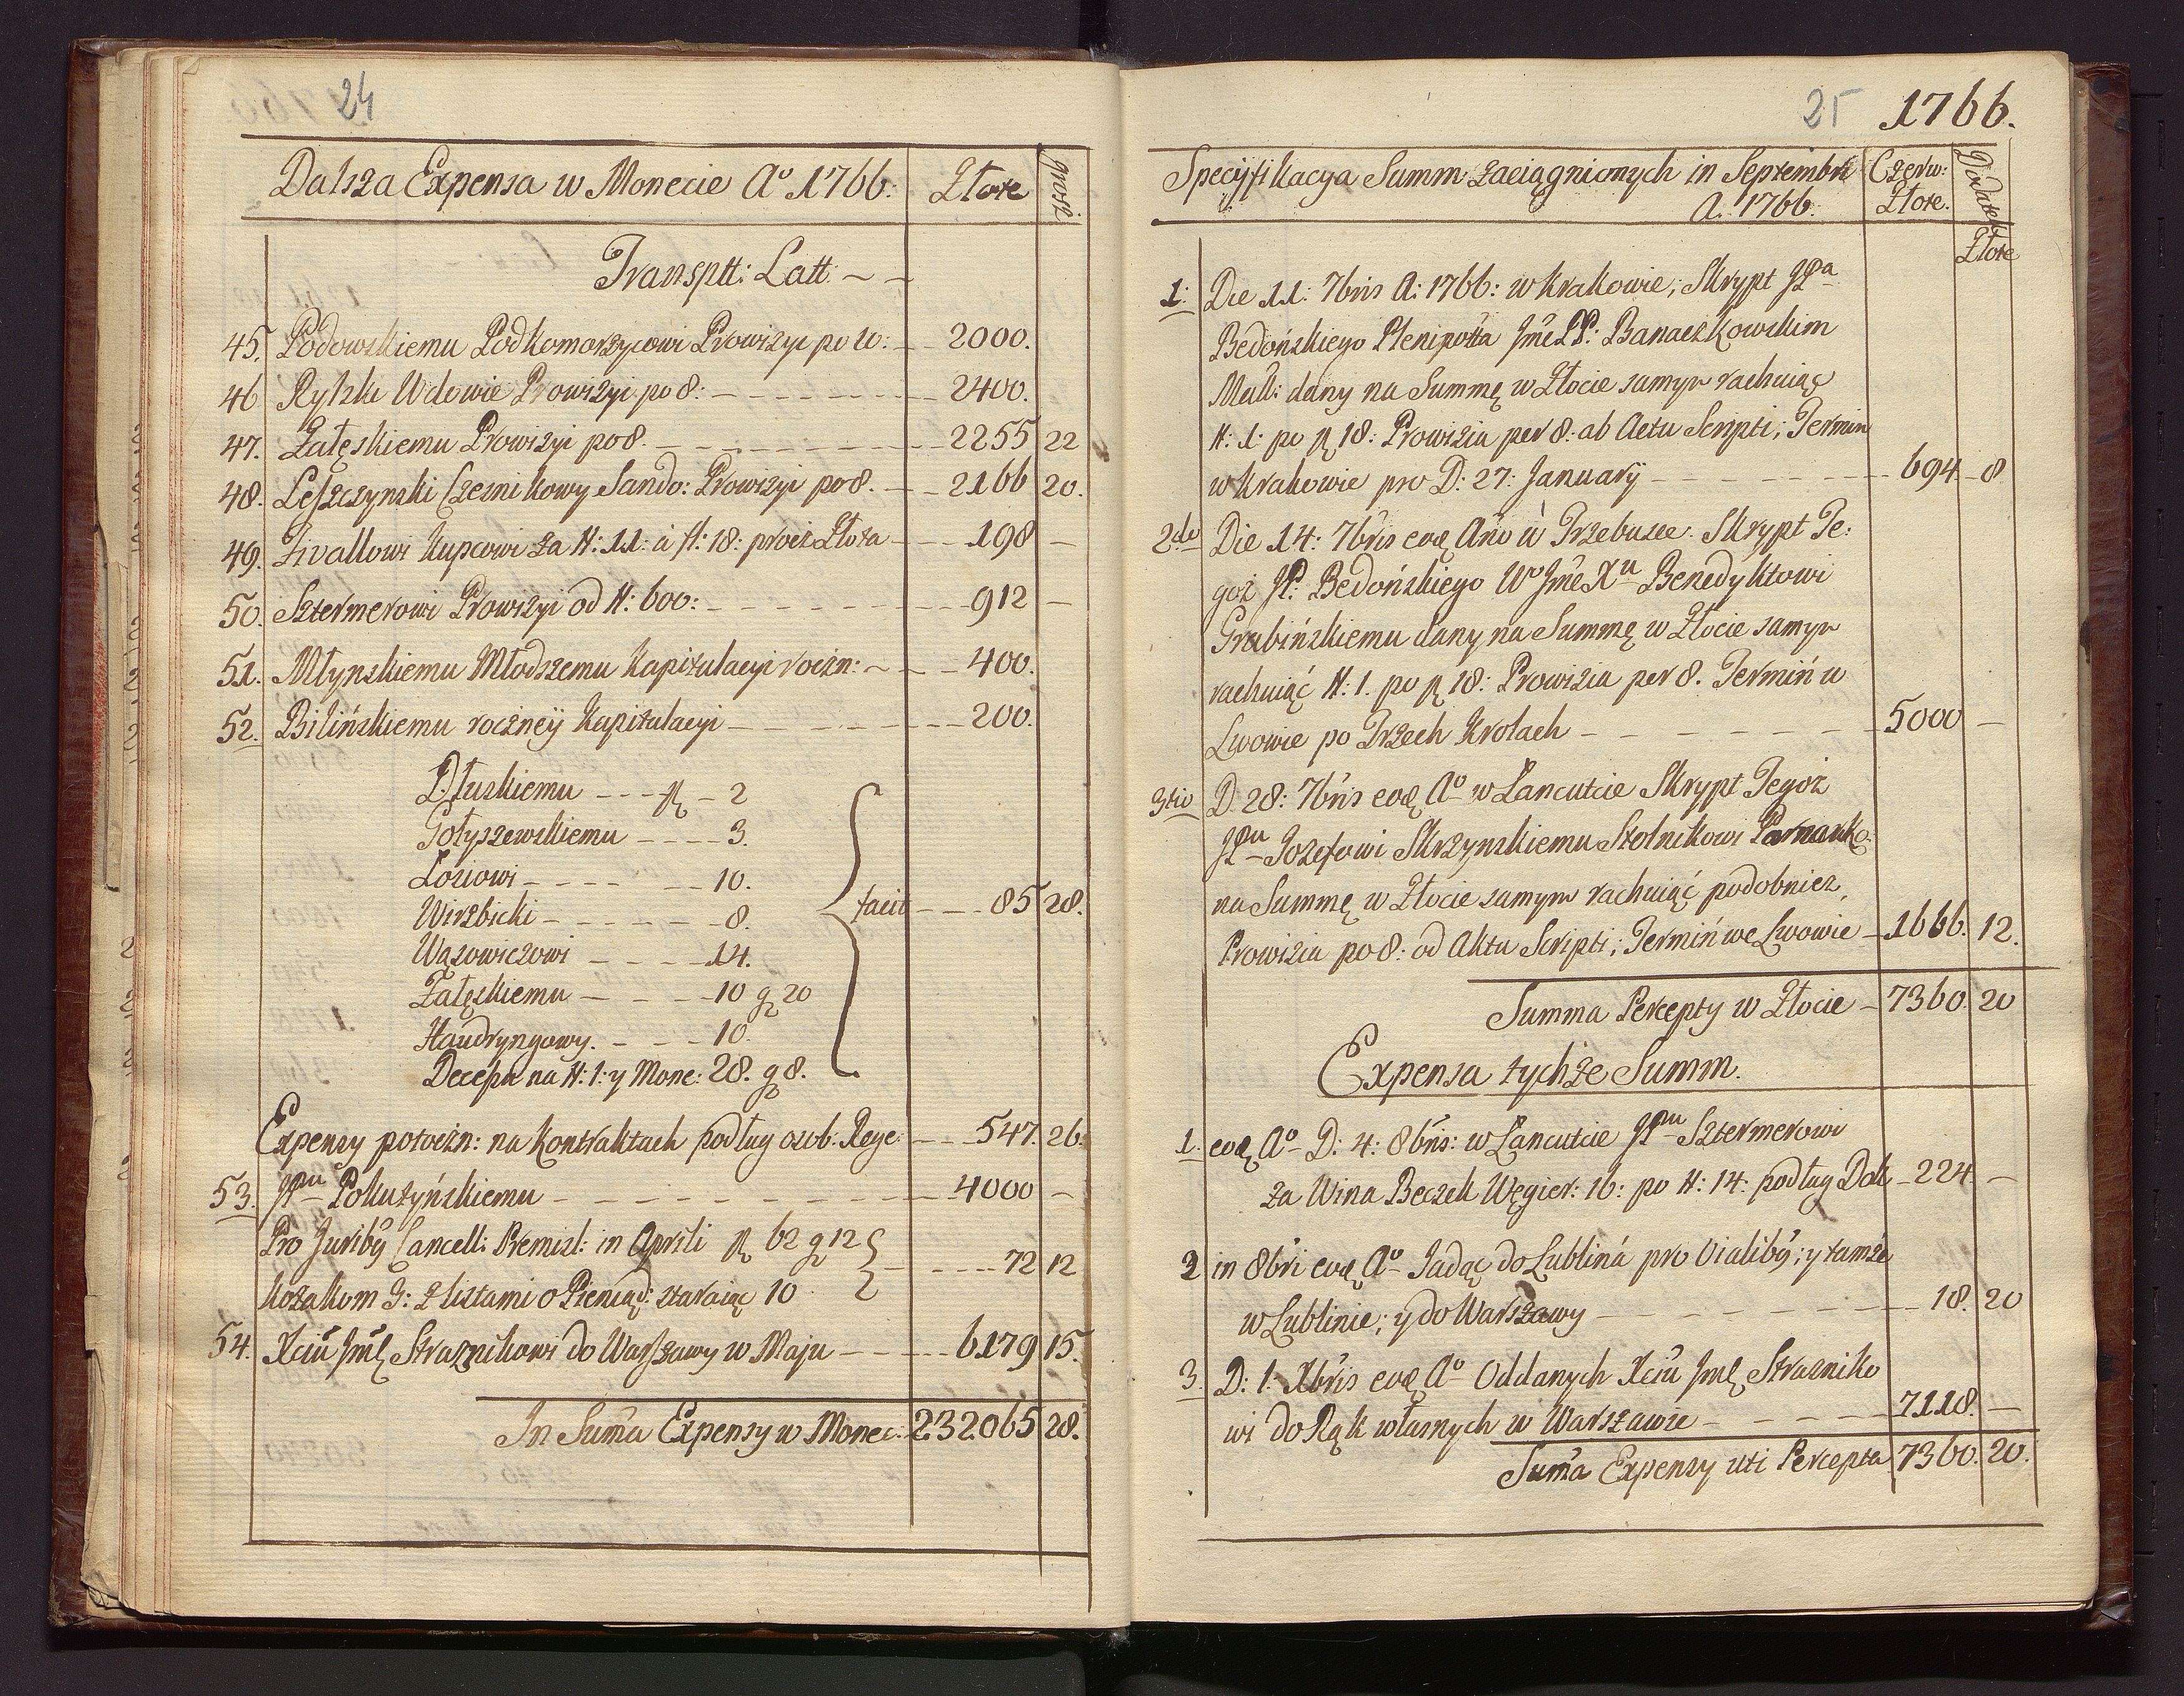 24
Dalsza Expensa w Monecie Aº 1766: Złote grosz
Transptt: Latt:
45. Podowskiemu Podkomorzycowi Prowizyi po 10: 2000.
46 Rylski Wdowie Prowizyi po 8: 2400.
47. Załęskiemu Prowizyi po 8. 2255 22
48. Leszczynski Czesnikowy Sando: Prowizyi po 8. 2166 20.
49. Fivallowi Kupcowi za #: 11: à fl: 18: procz Złota 198 —
50. Sztermerowi Prowizyi od #: 600: 912 —
51. Młynskiemu Młodszemu Kapitulacyi roczn: 400.
52. Bilińskiemu roczneÿ Kapitulacyi 200.
Dłuskiemu fl 2
Gołyszewskiemu 3.
Łosiowi 10.
Wirzbicki 8.
Wąsowiczowi 14.
Załęskiemu 10 g 20
Haudryngowy. 10.
Decepta na #: 1: y Mone: 28. g 8.
facit 85 28.
Expensy potoczn: na Kontraktach podług osob: Rege: 547. 26.
53. JPu Pokutyńskiemu 4000 —
Pro Juribȝ Cancell: Premisl: in Aprili fl 62 g 12
72 12
Kozakom G: z listami o Pieniąd: staraiąc 10
54. Xciu Jmę Straznikowi do Warszawy w Maju 6179 15.
In Suma Expensy w Monec: 232065 28.
25 1766.
Specyfikacya Summ zaciągnionych in Septembri Czerw: Dodatek
A. 1766: Złote. Złote
1: Die 11: 7bris A: 1766: w Krakowie, Skrypt JPa
Bedońskiego Plenipotta Jme PP: Banaczkowskim
Mall: dany na Summę w Złocie samym rachuiąc
#: 1: po fl 18: Prowizia per 8: ab Actu Scripti; Termin
w Krakowie pro D: 27: Januarÿ 694 8
2do Die 14: 7bris eoę Ano w Trzebusce. Skrypt Te:
goż JP: Bedońskiego Wo Jme Xu Benedyktowi
Grabińskiemu dany na Summę w Złocie samym
rachuiąc #: 1. po fl 18: Prowizia per 8. Termiń w
Lwowie po Trzech Krolach 5000 —
3tio D. 28: 7bris eoę Aº w Łancutcie Skrypt Tegoż
JPu Jozefowi Skrzynskiemu Stolnikowi
na Summę w Złocie samym rachuiąc podobniez,
Prowizia po 8: od Aktu Scripti; Termiń we Lwowie 1666. 12.
Summa Percepty w Złocie 7360. 20
Expensa tychże Summ.
1. eoę Aº D: 4: 8bris: w Łancutcie JPu Sztermerowi
za Wina Beczek Węgier: 16: po #: 14: podług Dok 224. —
2 in 8bri eoę Aº Jadąc do Lublina pro Vialibȝ; y tamże
w Lublinie; y do Warszawy 18. 20
3. D: 1. Xbris eoę Aº Oddanych Xciu Jmę Strazniko
wi do Rąk własnych w Warszawie 7118. —
Suma Expensy uti Percepta 7360. 20.